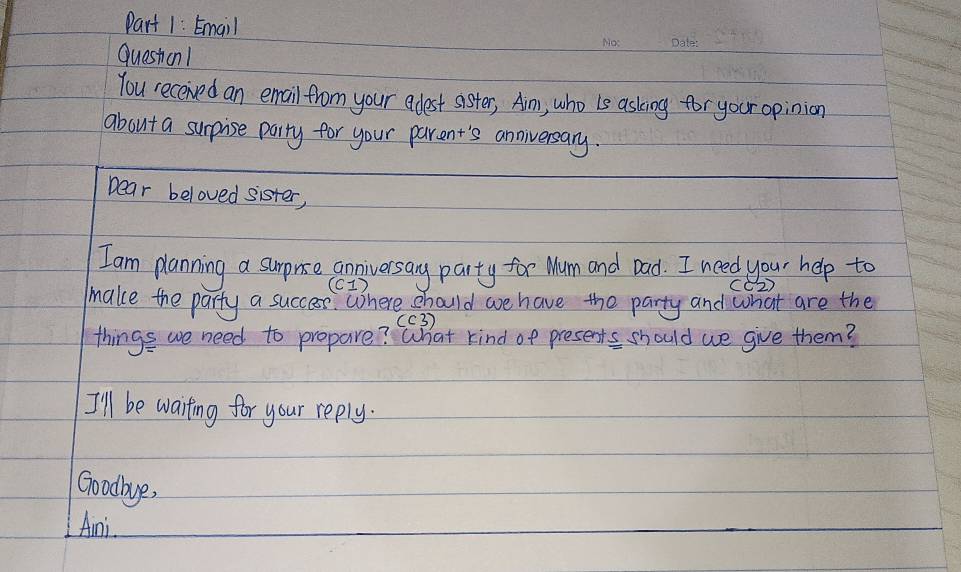 Part 1: Email
No: Date:
Question 1
You received an email from your eldest sister, Aini, who is asking for your opinion
about a surprise party for your parent's anniversary.
Dear beloved sister,
I am planning a surprise anniversary party for Mum and Dad. I need your help to
(C1) (C2)
make the party a success. Where should we have the party and what are the
(C3)
things we need to prepare? What kind of presents should we give them?
I'll be waiting for your reply.
Goodbye,
Aini.